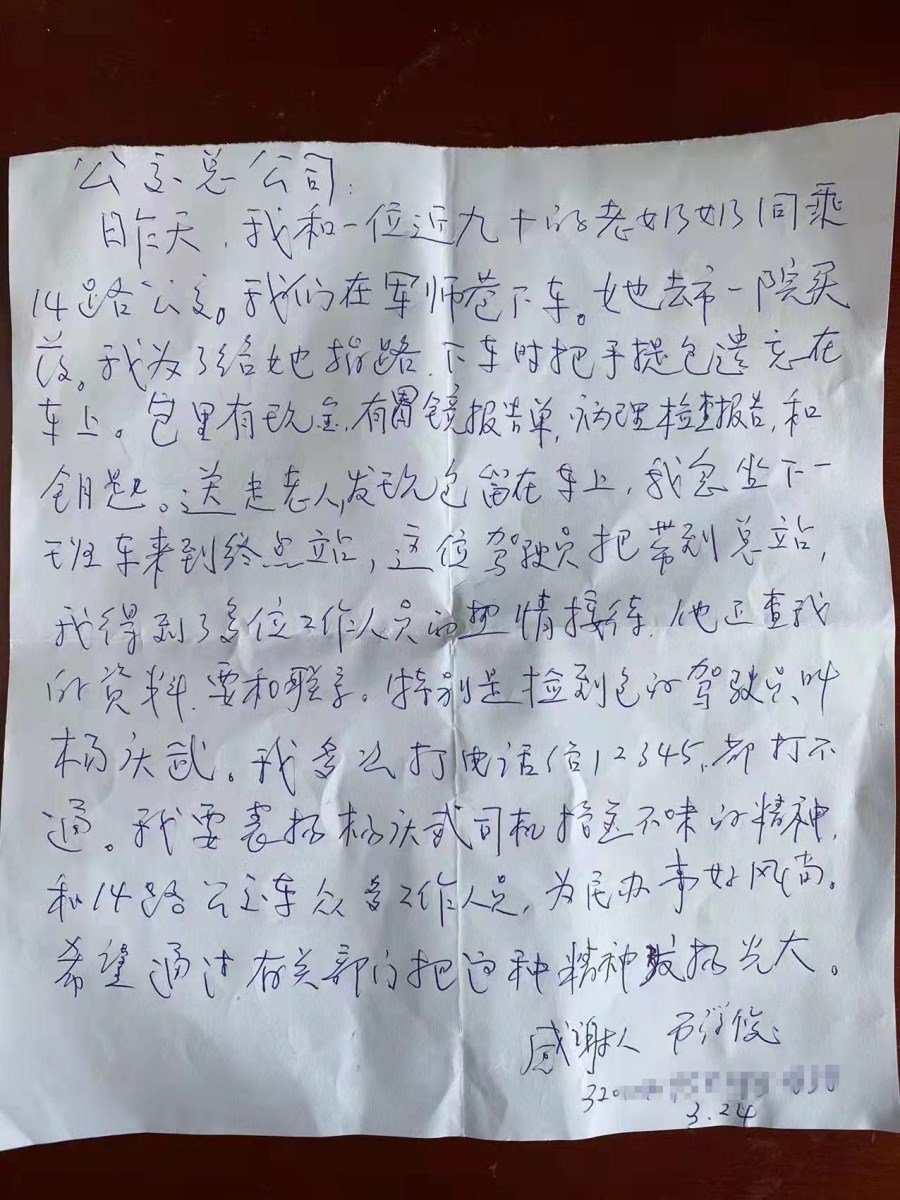 公交总公司:
昨天,我和一位近九十的老奶奶同乘
14路公交。我们在军师巷下车。她去市一院买
药。我为了给她指路,下车时把手提包遗忘在
车上。包里有现金,有胃镜报告单,病理检查报告,和
钥匙。送走老人,发现包留在车上,我忽坐下一
班车来到终点站,这位驾驶员把带到总站,
我得到了多位工作人员的热情接待,他正查我
的资料,要和联系。特别是捡到包的驾驶员叫
杨庆武。我多次打电话信12345,都打不
通。我要表扬杨庆武司机拾金不昧的精神,
和14路公交车众多工作人员,为民办事好风尚。
希望通过有关部门把这种精神发扬光大。
感谢人
320
3.24